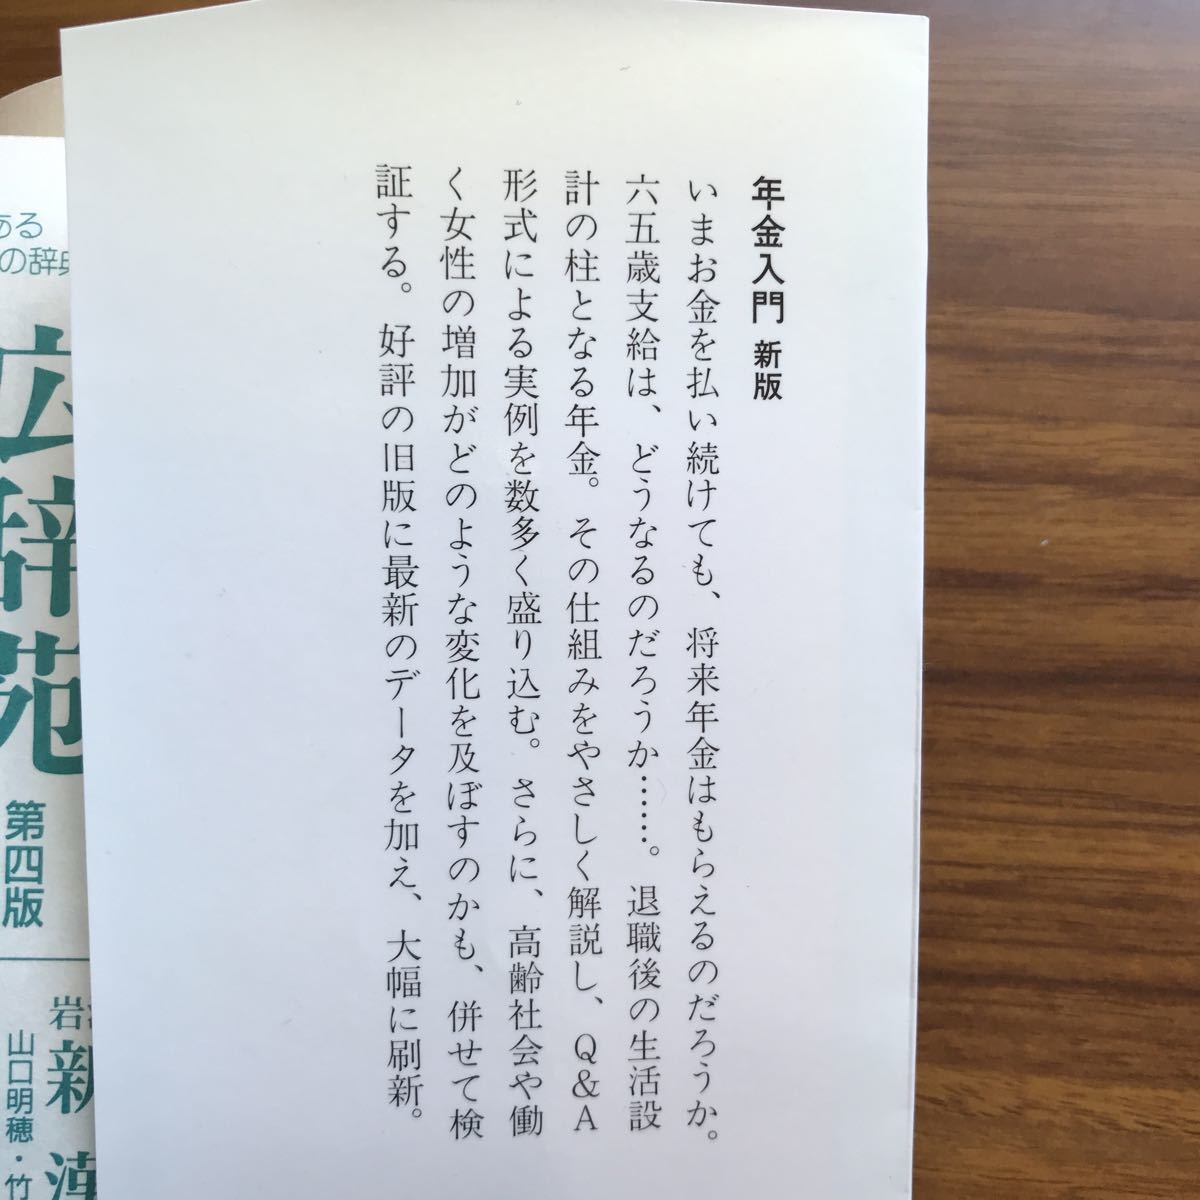 年金入門 新版
いまお金を払い続けても、将来年金はもらえるのだろうか。
六五歳支給は、どうなるのだろうか……。退職後の生活設
計の柱となる年金。その仕組みをやさしく解説し、Q&A
形式による実例を数多く盛り込む。さらに、高齢社会や働
く女性の増加がどのような変化を及ぼすのかも、併せて検
証する。好評の旧版に最新のデータを加え、大幅に刷新。
ある
の辞典
広辞苑
第四版
岩波
新漢
山口明穂・竹